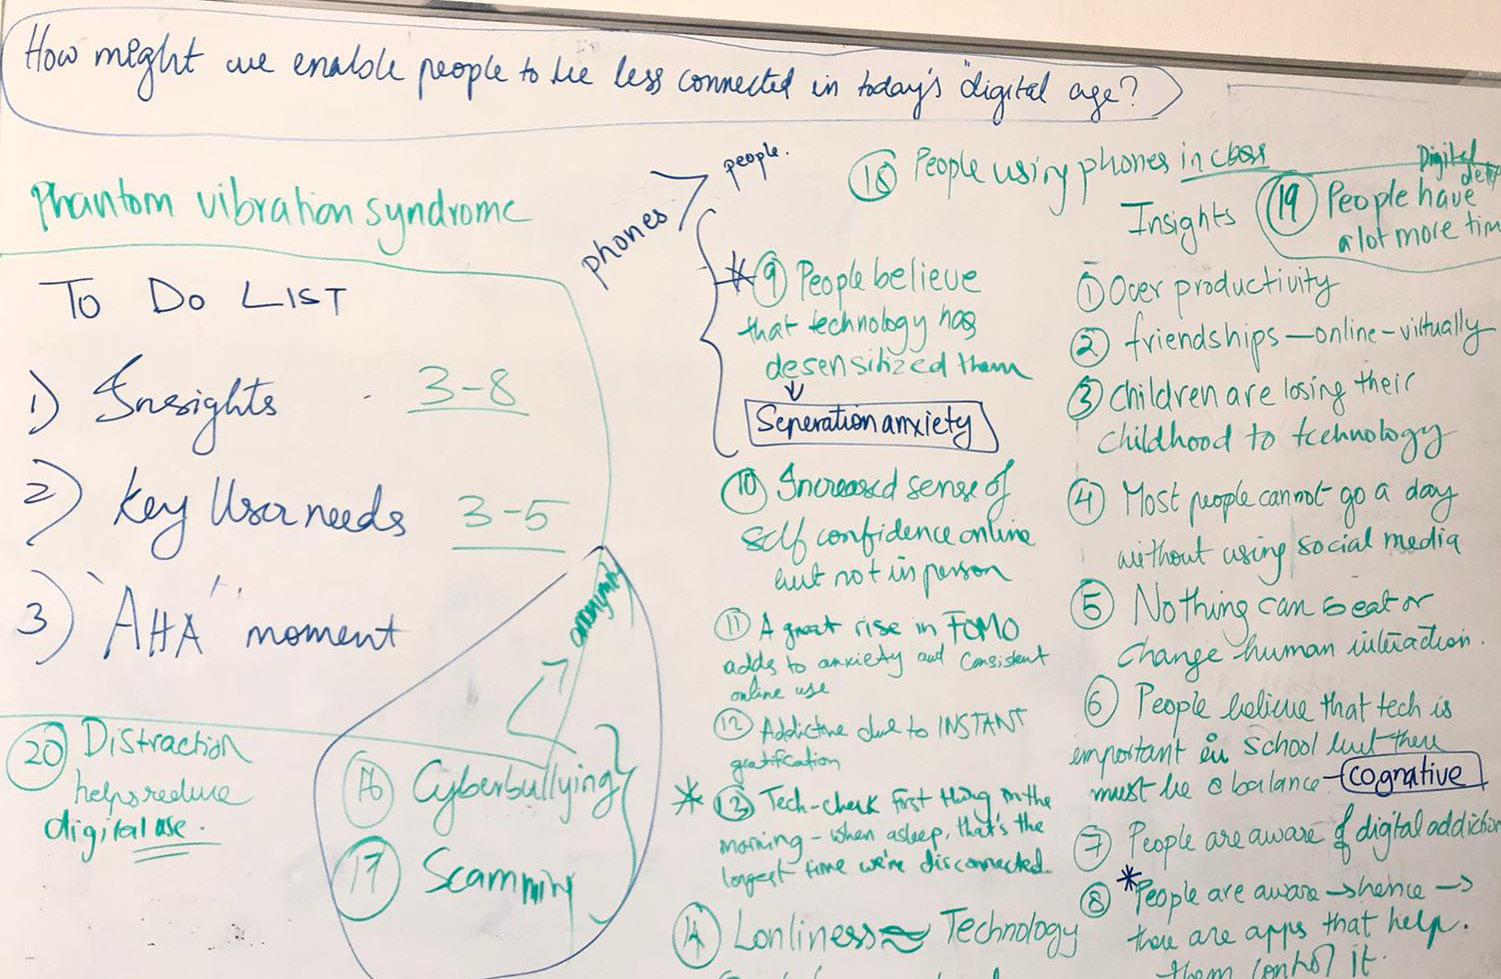 How might we enable people to be less connected in today's "digital age?
Phantom vibration syndrome
TO DO LIST
1) Insights 3-8
2) Key User needs 3-5
3) "AHA" moment
20 Distraction
helps reduce
digital use.
anonymity
16 Cyberbullying
17 Scamming
phones
people.
* 9 People believe
that technology has
desensitized them
Seperation anxiety
10 Increased sense of
self confidence online
but not in person
11 A great rise in FOMO
adds to anxiety and consistent
online use
12 Addictive due to INSTANT
gratification
* 13 Tech-check first thing in the
morning - when asleep, that's the
longest time we're disconnected.
14 Lonliness ≈ Technology
18 People using phones in class
Insights
Digital
19 People have
a lot more
1 Over productivity
2 friendships - online - virtually
3 Children are losing their
childhood to technology
4 Most people cannot go a day
without using social media
5 Nothing can beat or
change human interaction.
6 People believe that tech is
important in school but there
must be a balance - cognative
7 People are aware of digital addiction
8 *People are aware → hence →
there are apps that help.
them control it.